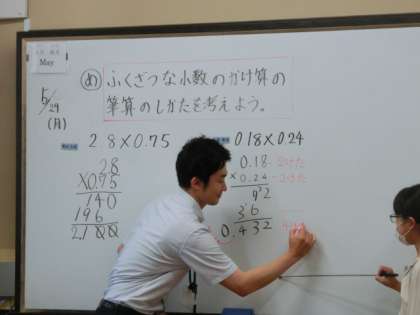 May
5/29
(月)
め ふくざつな小数のかけ算の
筆算のしかたを考えよう。
2.8×0.75
2.8
×0.75
140
196
2.100
0.18×0.24
0.18 2けた
×0.24 2けた
72
36
0.432